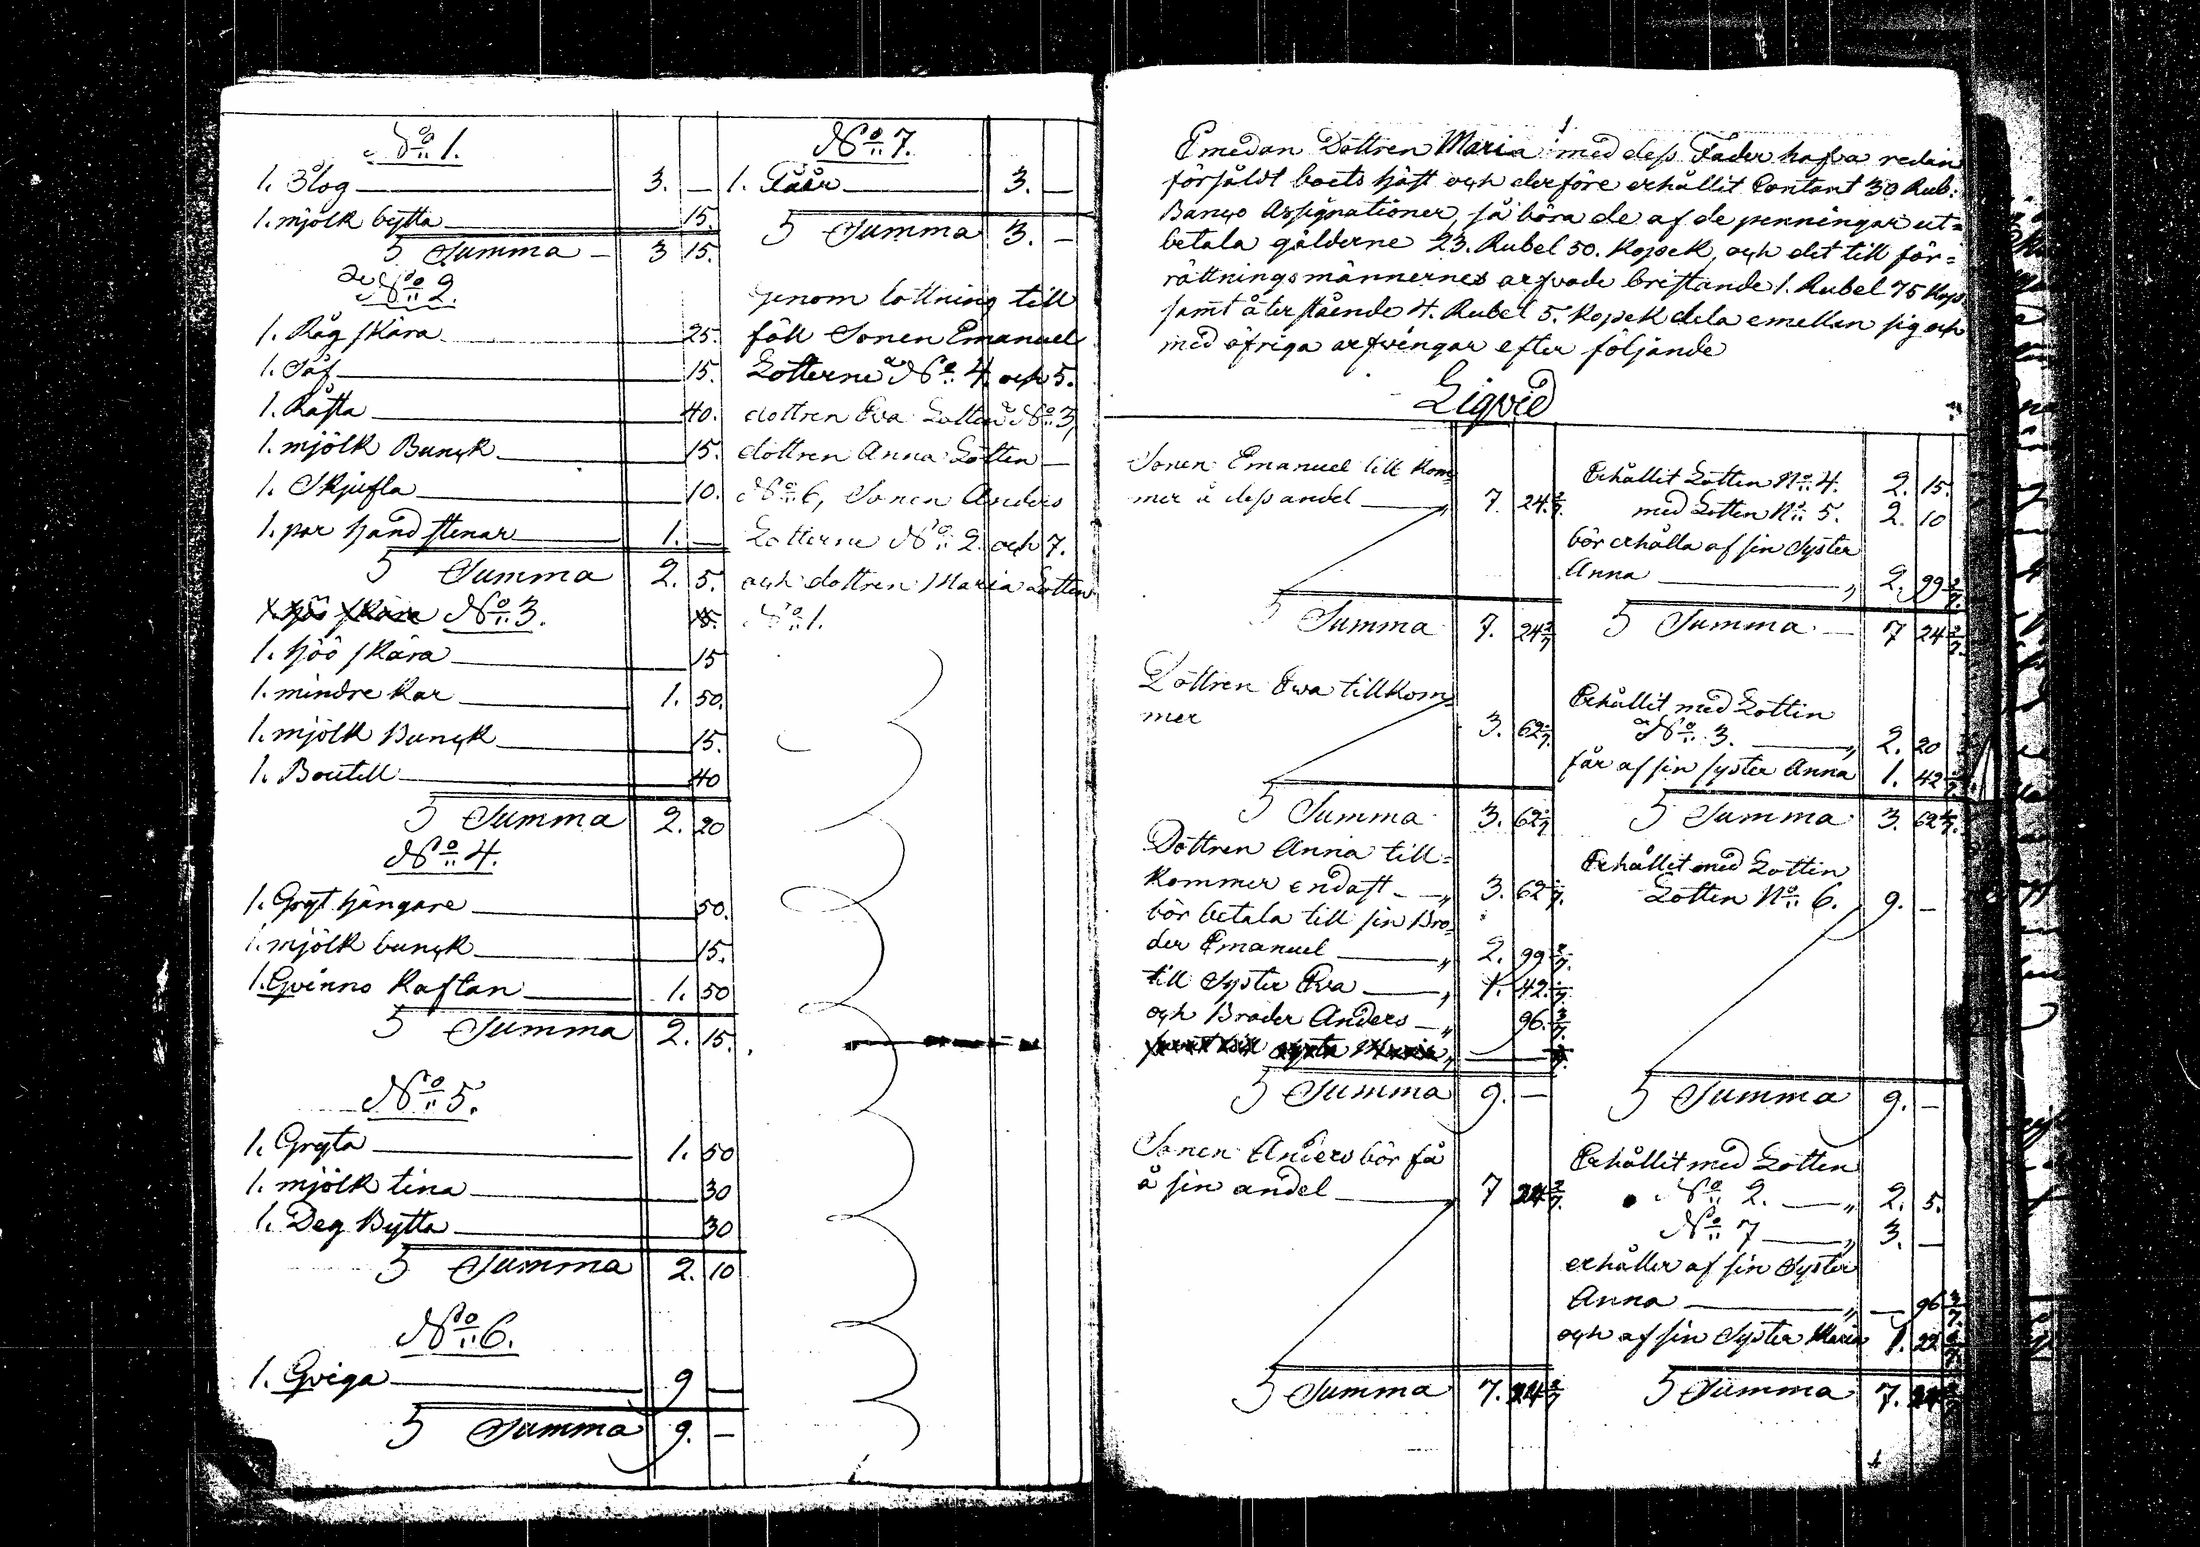 No 1.
1. Plog 3. —
1. mjölk bytta 15.
Summa — 3 15.
No 2.
1. Råg skära 25.
1. Såf 15.
1. Rafta 40.
1. mjölk Bunck 15.
1. Skjufla 10.
1. par hand stenar 1. —
Summa 2. 5.
No 3.
1. höö skära 15
1. mindre Kar 1. 50.
1. mjölk Bunck 15.
1. Boutell 40
Summa 2. 20
No 4.
1. Gryt hängare 50.
1. mjölk bunck 15.
1. Qvinno Kaftan 1. 50
Summa 2. 15.
No 5.
1. Gryta 1. 50
1. mjölk tina 30
1. Deg Bytta 30
Summa 2. 10
No 6.
1. Qviga 9 —
Summa 9. —
No 7.
1. Fåår 3. —
Summa 3. —
genom lottning till
föll Sonen Emanuel
Lotterne No 4 och 5.
dottren Eva Lotten No 3,
dottren Anna Lotten —
No 6, Sonen Anders
Lotterne No 2. och 7.
och dottren Maria Lotten
No 1.
Emedan Dottren Maria med dess Fader hafva redan
försåldt boets häst och derföre erhållit Contant 30 Rub.
Banco Assignationer, så böra de af de penningar ut=
betala gälderne 23. Rubel 50. Kopek, och det till för=
rättningsmännernes arfvode bristande 1. Rubel 75 Kop.
samt återstående 4. Rubel 5. Kopek dela emellan sig och
med öfriga arfvingar efter följande
Liqvid
Sonen Emanuel till kom=
mer å dess andel 7. 24 2/7.
Summa 7. 24 2/7
Erhållit Lotten No 4. 2. 15.
med Lotten No 5. 2. 10
bör erhålla af sin Syster
Anna 2. 99 2/7.
Summa — 7 24 2/7.
Dottren Eva tillkom=
mer 3. 62 1/7.
Summa 3. 62 1/7
Erhållit med Lotten
No 3. 2. 20
får af sin syster Anna 1. 42 1/7.
Summa 3. 62 1/7.
Dottren Anna till=
kommer endast 3. 62 1/7.
bör betala till sin Bro=
der Emanuel 2. 99 2/7.
till Syster Eva 1. 42. 1/7.
och Broder Anders 96. 3/7.
Summa 9. —
Erhållit med Lotten
Lotten No 6. 9. —
Summa 9. —
Sonen Anders bör få
å sin andel 7 24 2/7.
Summa 7. 24 2/7
Erhållit med Lotten
No 2. 2. 5.
No 7 3. —
erhåller af sin Syster
Anna — 96 3/7.
och af sin Syster Maria 1. 22 6/7.
Summa 7. 24 2/7